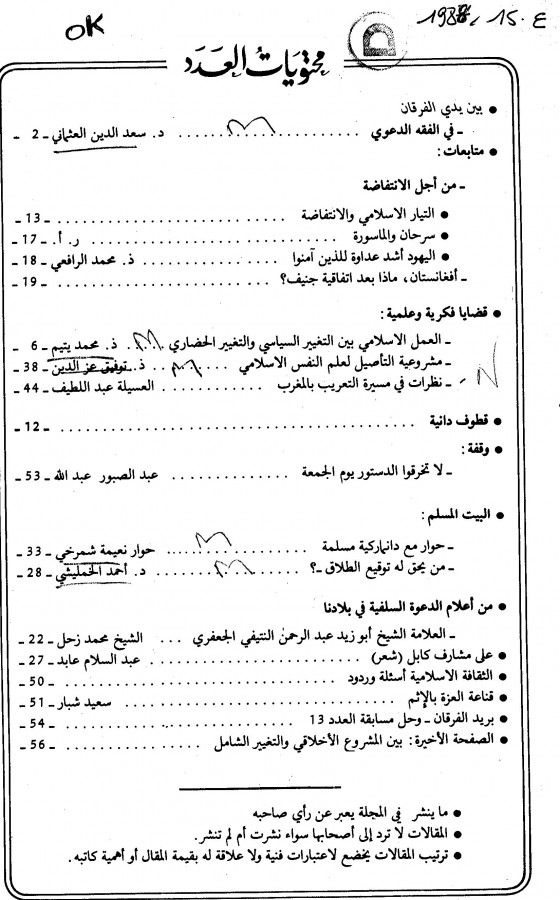 OK
1988، 15. ع
محتويات العدد
● بين يدي الفرقان
ـ في الفقه الدعوي .................... د. سعد الدين العثماني ـ 2 ـ
● متابعات:
ـ من أجل الانتفاضة
● التيار الاسلامي والانتفاضة .................... ـ 13 ـ
● سرحان والماسورة .................... ر. أ. ـ 17 ـ
● اليهود أشد عداوة للذين آمنوا .......... ذ. محمد الرافعي ـ 18 ـ
ـ أفغانستان، ماذا بعد اتفاقية جنيف؟ .................... ـ 19 ـ
● قضايا فكرية وعلمية:
ـ العمل الاسلامي بين التغيير السياسي والتغيير الحضاري .... ذ. محمد يتيم ـ 6 ـ
ـ مشروعية التأصيل لعلم النفس الاسلامي .......... ذ. توفيق عز الدين ـ 38 ـ
ـ نظرات في مسيرة التعريب بالمغرب ............ العسيلة عبد اللطيف ـ 44 ـ
● قطوف دانية .................... ـ 12 ـ
● وقفة:
ـ لا تخرقوا الدستور يوم الجمعة ............. عبد الصبور عبد الله ـ 53 ـ
● البيت المسلم:
ـ حوار مع دانماركية مسلمة .................... حوار نعيمة شمرخي ـ 33 ـ
ـ من يحق له توقيع الطلاق ـ؟ .................... د. أحمد الخمليشي ـ 28 ـ
● من أعلام الدعوة السلفية في بلادنا
ـ العلامة الشيخ أبو زيد عبد الرحمن النتيفي الجعفري ... الشيخ محمد زحل ـ 22 ـ
● على مشارف كابل (شعر) .................... عبد السلام عابد ـ 27 ـ
● الثقافة الاسلامية أسئلة وردود .................... ـ 50 ـ
● قناعة العزة بالإثم .................... سعيد شبار ـ 51 ـ
● بريد الفرقان ـ وحل مسابقة العدد 13 .................... ـ 54 ـ
● الصفحة الأخيرة: بين المشروع الأخلاقي والتغيير الشامل ............... ـ 56 ـ
● ما ينشر في المجلة يعبر عن رأي صاحبه
● المقالات لا ترد إلى أصحابها سواء نشرت أم لم تنشر.
● ترتيب المقالات يخضع لاعتبارات فنية ولا علاقة له بقيمة المقال أو أهمية كاتبه.